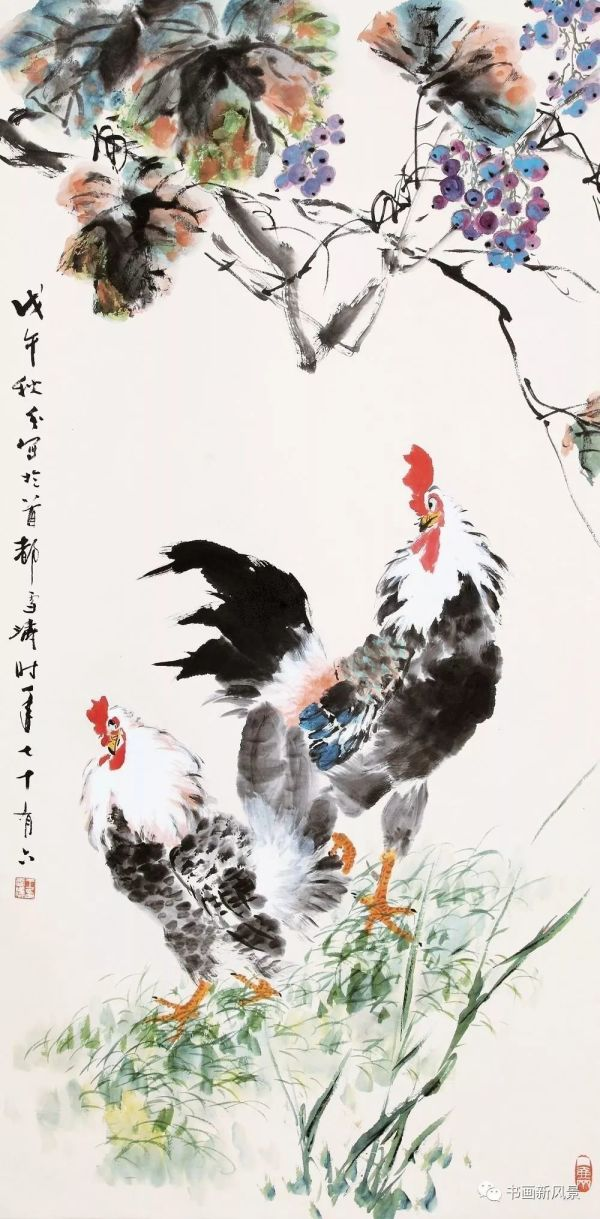 戊午秋分写于首都雪涛时年七十有六
书画新风景